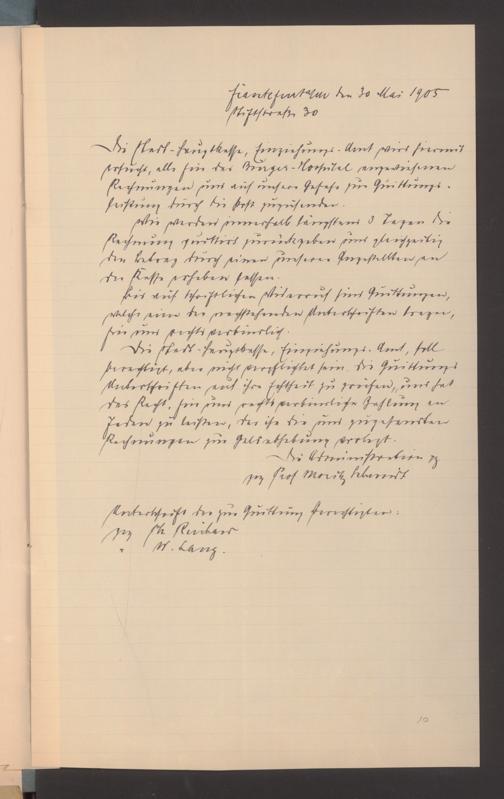 Frankfurt a/M den 30 Mai 1905
Stiftstraße 30
Die Stadt-Hauptkasse, Einziehungs-Amt wird hiermit
ersucht, alle für das Bürger-Hospital angewiesenen
Rechnungen uns auf unsere Gefahr zur Quittungs-
leistung durch die Post zuzusenden.
Wir werden innerhalb längstens 3 Tagen die
Rechnung quittirt zurückgeben und gleichzeitig
den Betrag durch einen unserer Angestellten an
der Kasse erheben lassen.
Bis auf schriftlichen Widerruf sind Quittungen,
welche eine der nachstehenden Unterschriften tragen,
für uns rechtsverbindlich.
Die Stadt-Hauptkasse, Einziehungs-Amt, soll
berechtigt, aber nicht verpflichtet sein die Quittungs
Unterschriften auf ihre Echtheit zu prüfen, und hat
das Recht, für uns rechtsverbindliche Zahlung an
Jeden zu leisten, der ihr die uns zugesandten
Rechnungen zur Gelderhebung vorlegt.
Die Administration
gez Prof Moritz Schmidt
Unterschrift der zur Quittung Berechtigten:
gez Ph
" W. Lang.
10